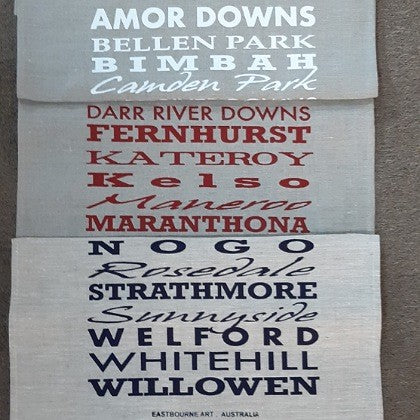 AMOR DOWNS
BELLEN PARK
BIMBAH
Camden Park
DARR RIVER DOWNS
FERNHURST
KATEROY
Kelso
Maneroo
MARANTHONA
NOGO
Rosedale
STRATHMORE
Sunnyside
WELFORD
WHITEHILL
WILLOWEN
EASTBOURNE ART . AUSTRALIA